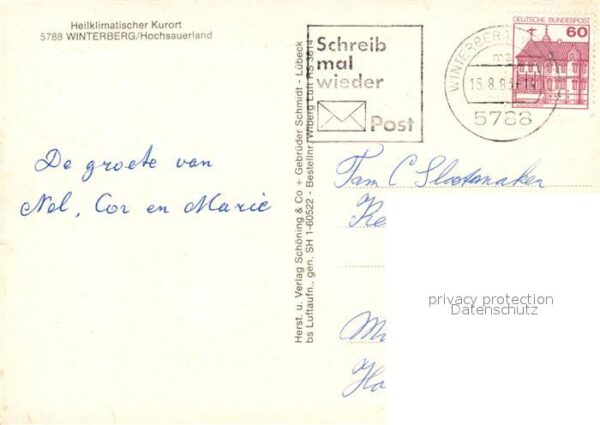 Heilklimatischer Kurort
5788 WINTERBERG/Hochsauerland
De groete van
Nel, Cor en Marie
Herst. u. Verlag Schöning & Co + Gebrüder Schmidt - Lübeck
bs Luftaufn., gen. SH 1-60522 - Bestellnr. Wiberg Luft RS 3614
Schreib
mal
wieder
Post
WINTERBERG
5788
DEUTSCHE BUNDESPOST
60
Fam C Slootmaker
privacy protection
Datenschutz